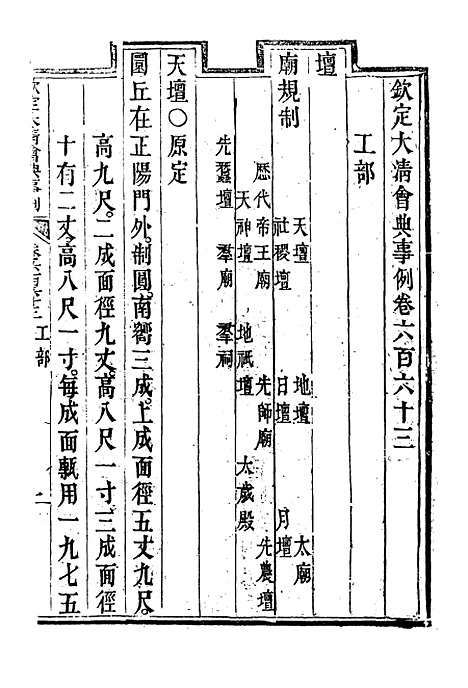 欽定大清會典事例卷六百六十三
工部
壇
廟規制
天壇 地壇 太廟
社稷壇 日壇 月壇
歷代帝王廟 先師廟 先農壇
天神壇 地祇壇 太歲殿
先蠶壇 羣廟 羣祠
天壇○原定
圜丘在正陽門外。制圓。南嚮三成。上成面徑五丈九尺。
高九尺。二成面徑九丈。高八尺一寸。三成面徑
十有二丈。高八尺一寸。每成面甎用一九七五
欽定大清會典事例 卷六百六十三 工部 一